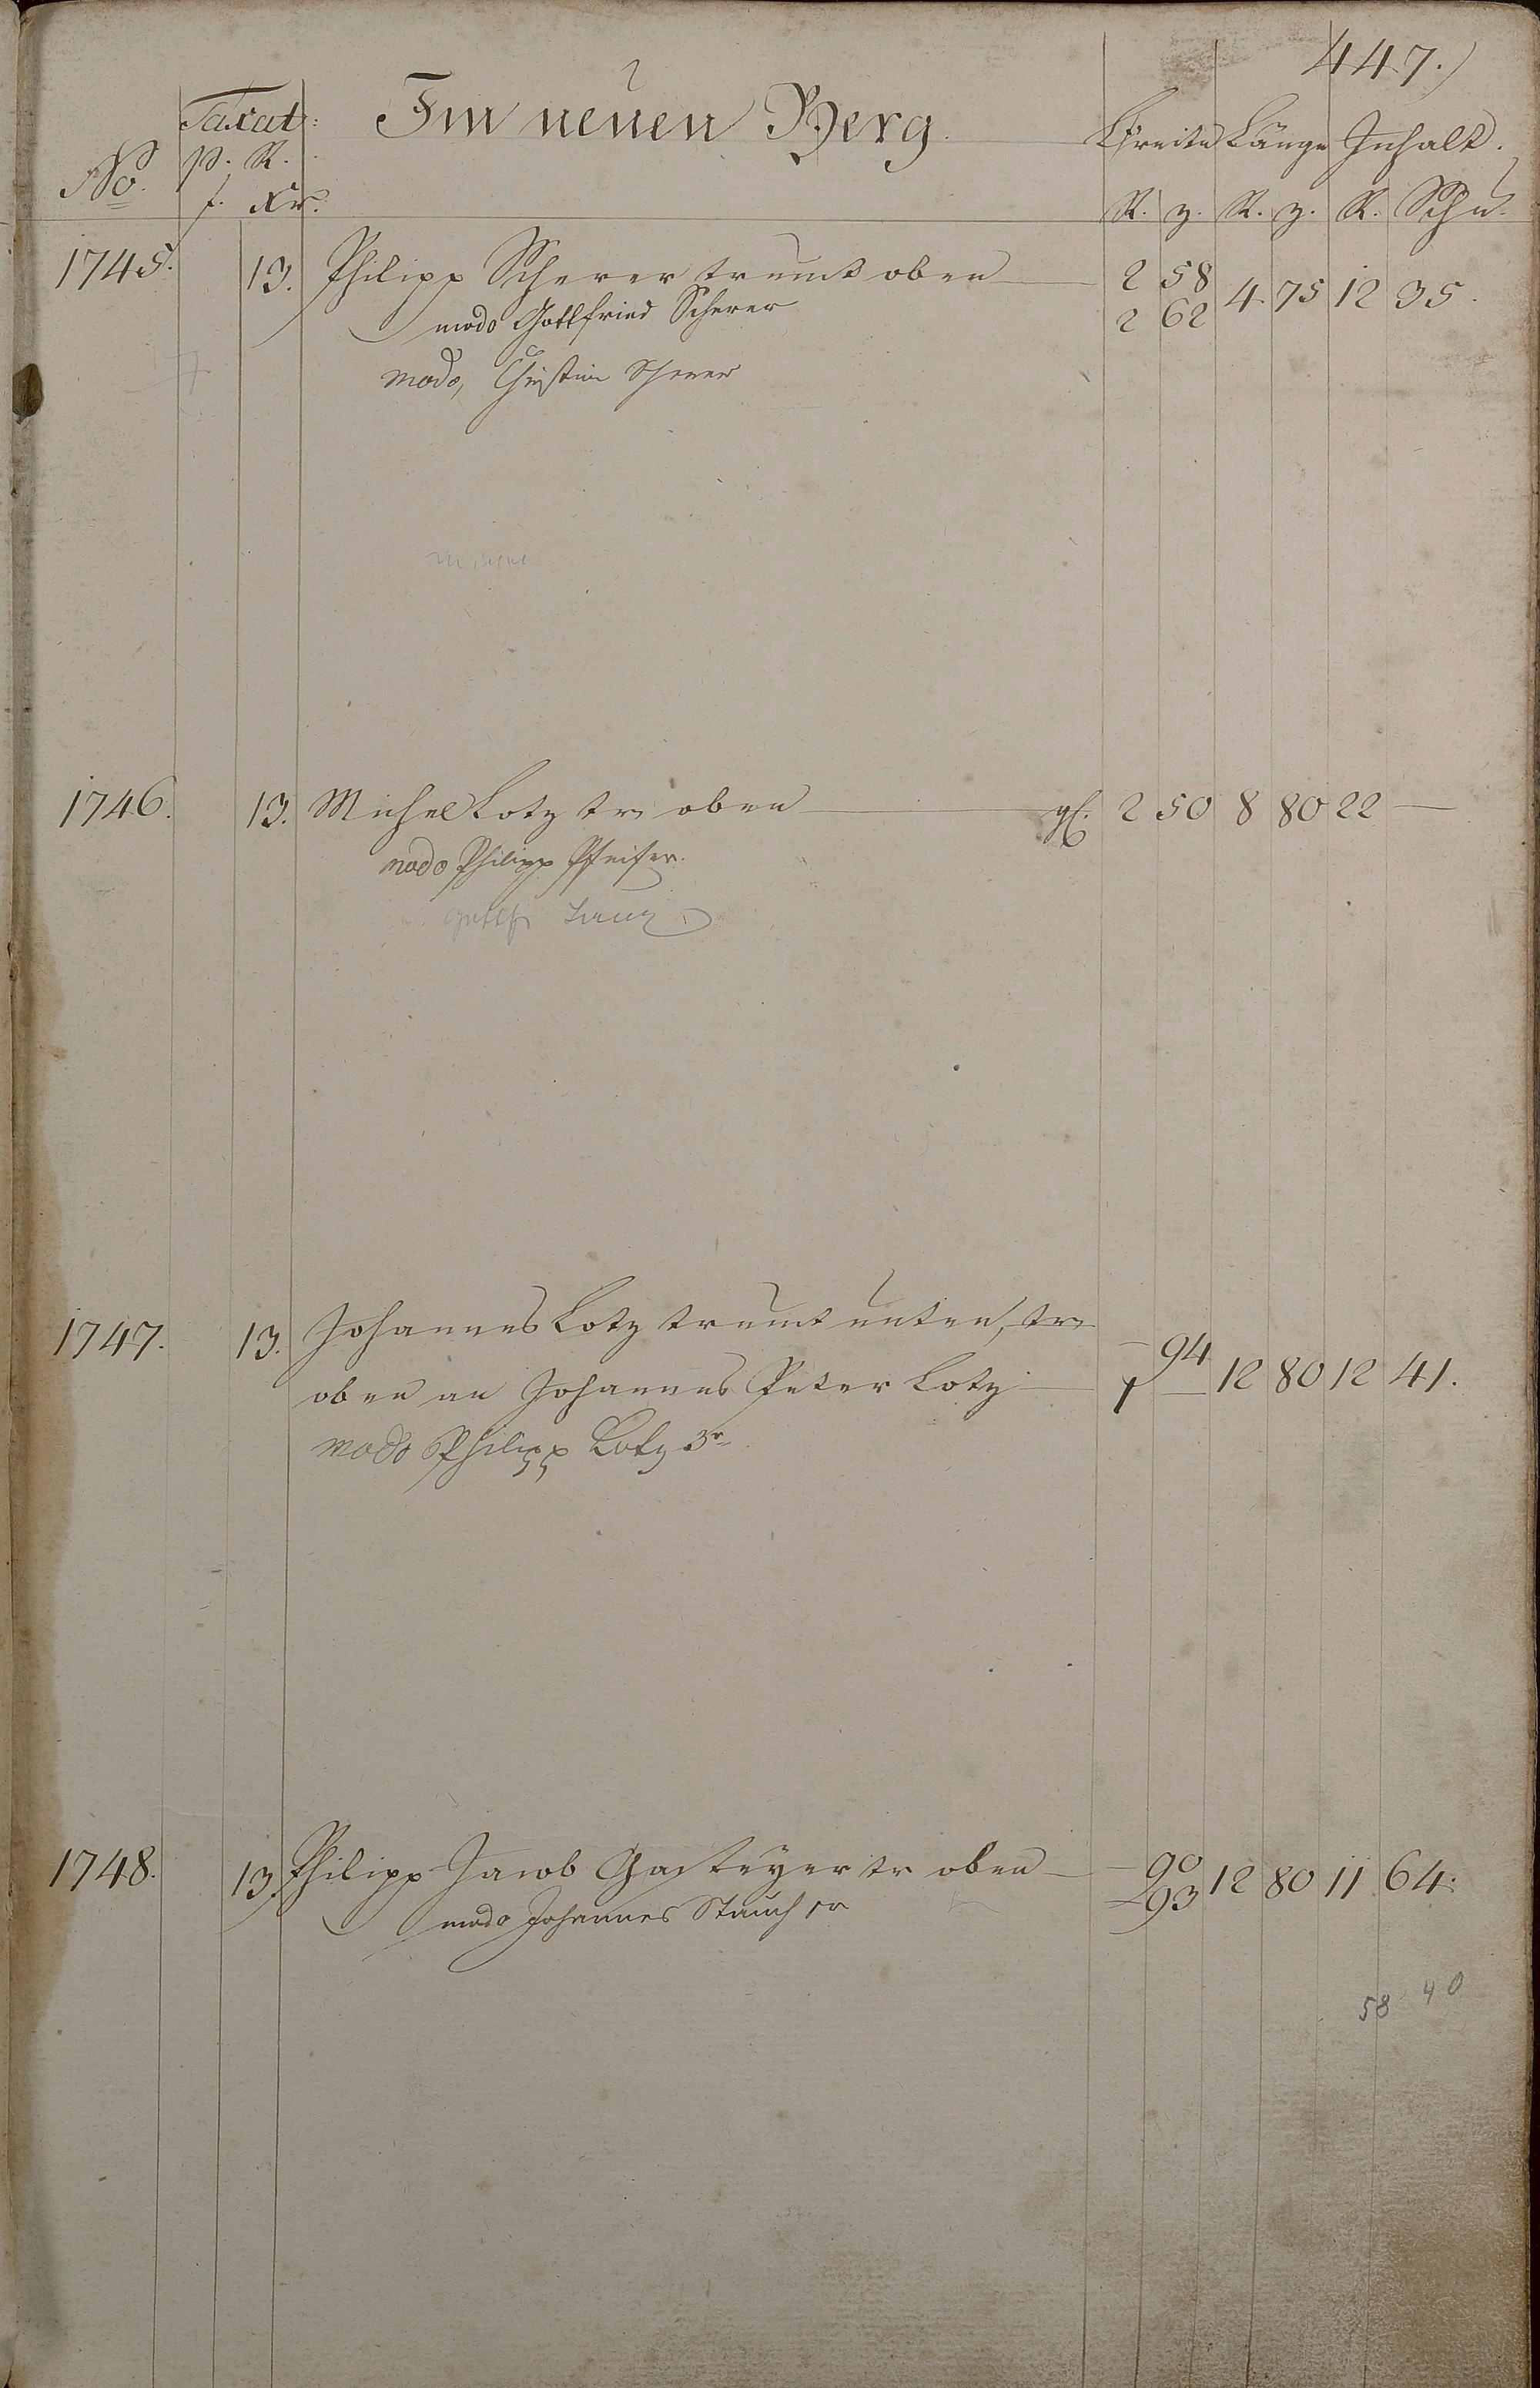 447.)
Taxat: Im neuen Berg Breite Länge Inhalt.
No. p. R.
f. Xr. R. z. R. z. R. Schu.
1745. 13. Philipp Scherer trumt oben 2 58 4 75 12 35.
modo Gottfried Scherer 2 62
modo, Christian Scherer
1746. 13. Michel Lotz tr oben gl. 2 50 8 80 22 —
modo Philipp Pfeifer.
Gottfr
1747. 13. Johannes Lotz trumt unten, tr — 94
oben an Johannes Peter Lotz 1 — 12 80 12 41.
modo Philipp Lotz 3r
1748. 13. Philipp Jacob Gasteyer tr oben — 90 12 80 11 64.
modo Johannes Stauch 1r — 93
58 40